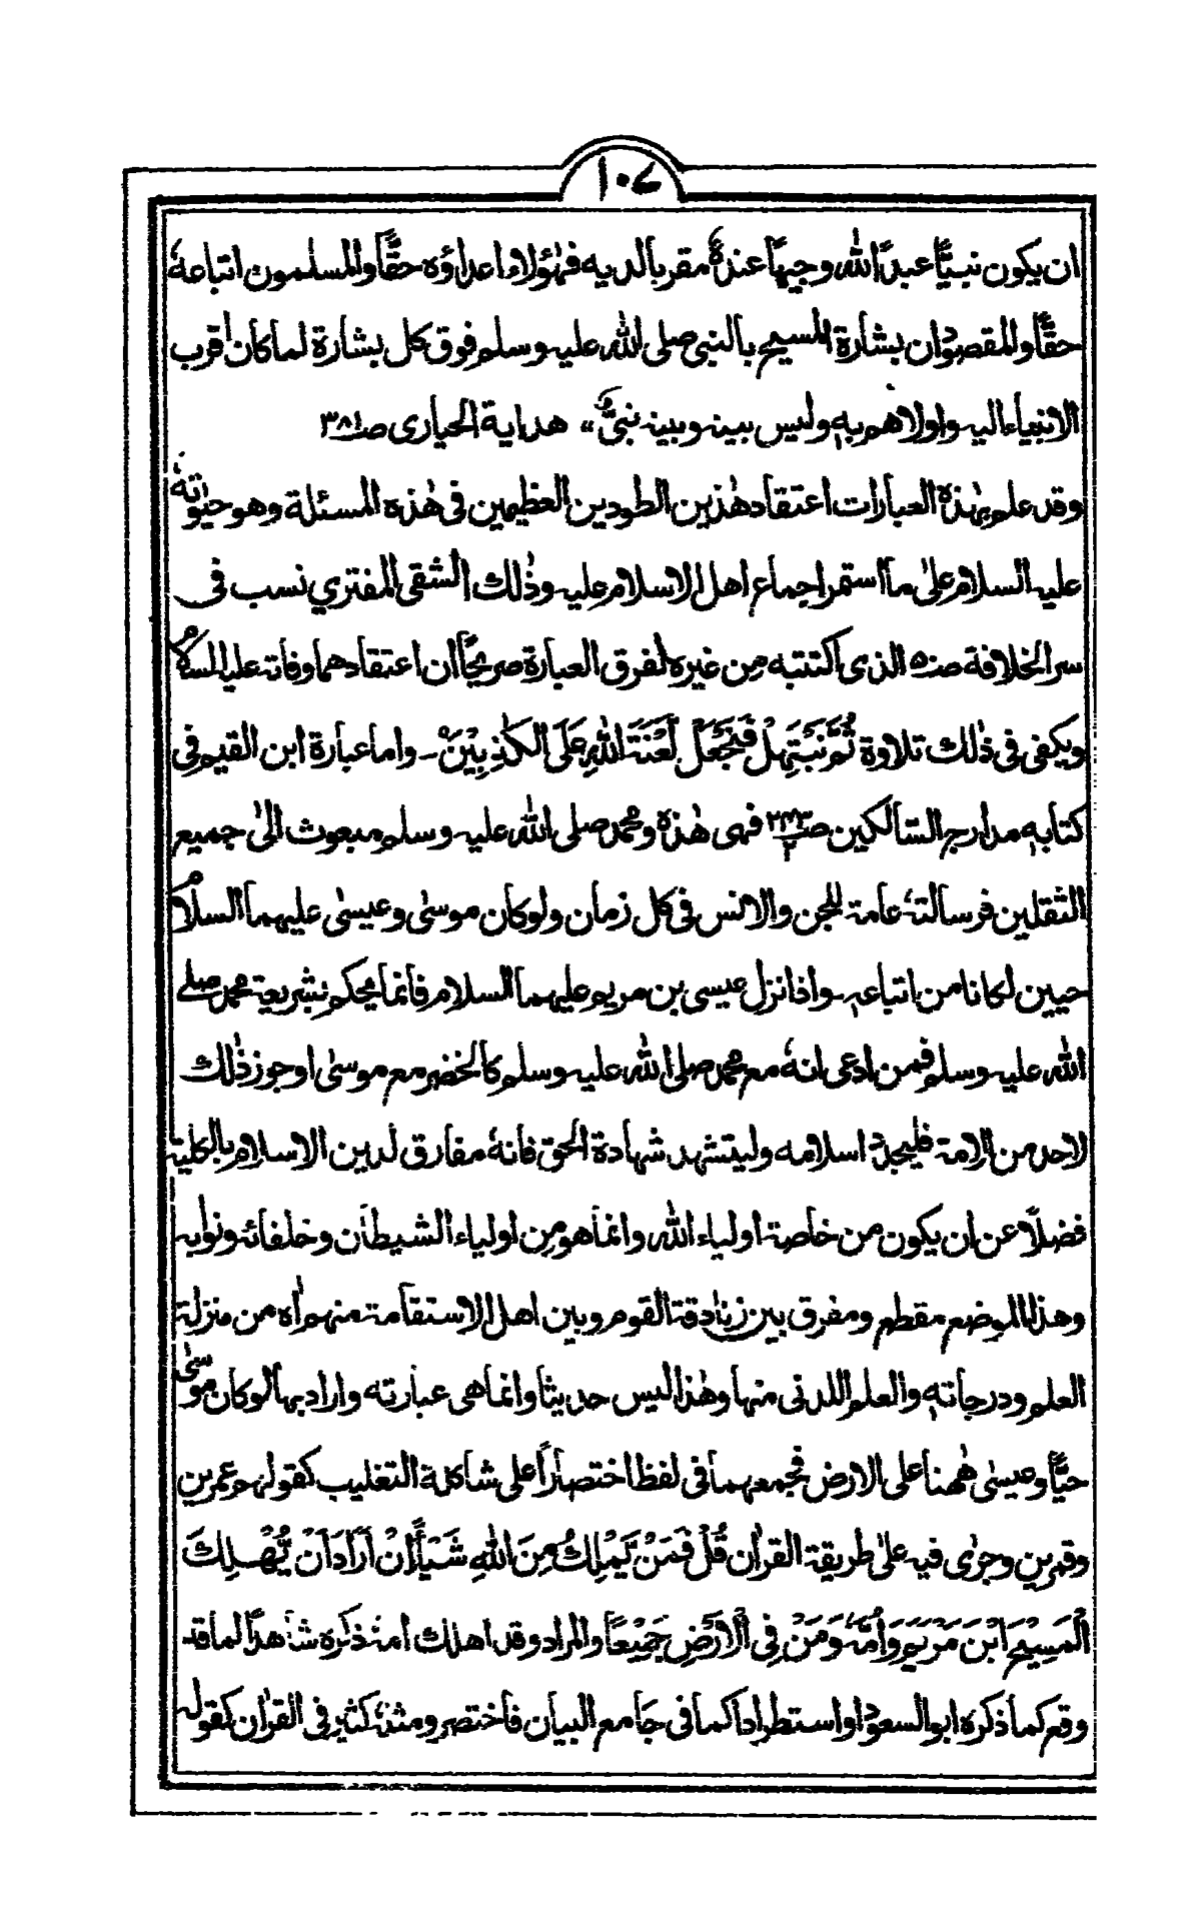 ١٠٧
ان يكون نبيًّا عبدًا لله وجيهًا عندهٗ مقربا لديه فهٰؤلاء اعداؤه حقًّا والمسلمون اتباعهٗ
حقًّا والمقصود ان بشارة المسيح بالنبي صلى الله عليه وسلم فوق كل بشارة لما كان اقرب
الانبياء اليه واولاهم به وليس بينه وبينه نبيٌّ" هداية الحيارى صـ٣٨١
وقد علم بهٰذه العبارات اعتقاد هٰذين الطودين العظيمين فى هٰذه المسئلة وهو حيٰوتهٗ
عليه السلام علىٰ ما استمر اجماع اهل الاسلام عليه وذٰلك الشقى المفتري نسب فى
سر الخلافة صـ٥٠ الذى اكتتبه من غيره لفرق العبارة صريحًا ان اعتقادهما وفاته عليه السلام
ويكفى فى ذٰلك تلاوة ثُمَّ نَبْتَهِلْ فَنَجْعَلْ لَّعْنَتَ اللّٰهِ عَلَى الْكٰذِبِيْنَ ـ واما عبارة ابن القيم فى
كتابه مدارج السالكين صـ٢٤٣ ٢ فهى هٰذه ومحمد صلى الله عليه وسلم مبعوث الىٰ جميع
الثقلين فرسالتهٗ عامة للجن والانس فى كل زمان ولو كان موسىٰ وعيسىٰ عليهما السلام
حيين لكانا من اتباعه ـ واذا نزل عيسى بن مريم عليهما السلام فانما يحكم بشريعة محمد صلى
الله عليه وسلم فمن ادعى انهٗ مع محمد صلى الله عليه وسلم كالخضر مع موسىٰ او جوز ذٰلك
لاحد من الامة فليجدد اسلامه وليتشهد شهادة الحق فانهٗ مفارق لدين الاسلام بالكلية
فضلًا عن ان يكون من خاصة اولياء الله وانما هو من اولياء الشيطان وخلفائه ونوابه
وهذا الموضع مقطع ومفرق بين زنادقة القوم وبين اهل الاستقامة منهم اٰه من منزلة
العلم ودرجاته والعلم اللدنى منها وهٰذا ليس حديثا وانما هى عبارته واراد بها لو كان موسٰى
حيًّا وعيسىٰ هٰهنا على الارض فجمعهما فى لفظ اختصارًا على شاكلة التغليب كقولهم عمرين
وقمرين وجرٰى فيه علىٰ طريقة القراٰن قُلْ فَمَنْ يَّمْلِكُ مِنَ اللّٰهِ شَيْأً اِنْ اَرَادَ اَنْ يُّهْلِكَ
الْمَسِيْحَ ابْنَ مَرْيَمَ وَاُمَّهٗ وَمَنْ فِى الْاَرْضِ جَمِيْعًا والمراد وقد اهلك امهٗ ذكره شاهدًا لما قد
وقع كما ذكره ابو السعود او استطرادا كما فى جامع البيان فاختصر ومثلهٗ كثير فى القراٰن كقوله